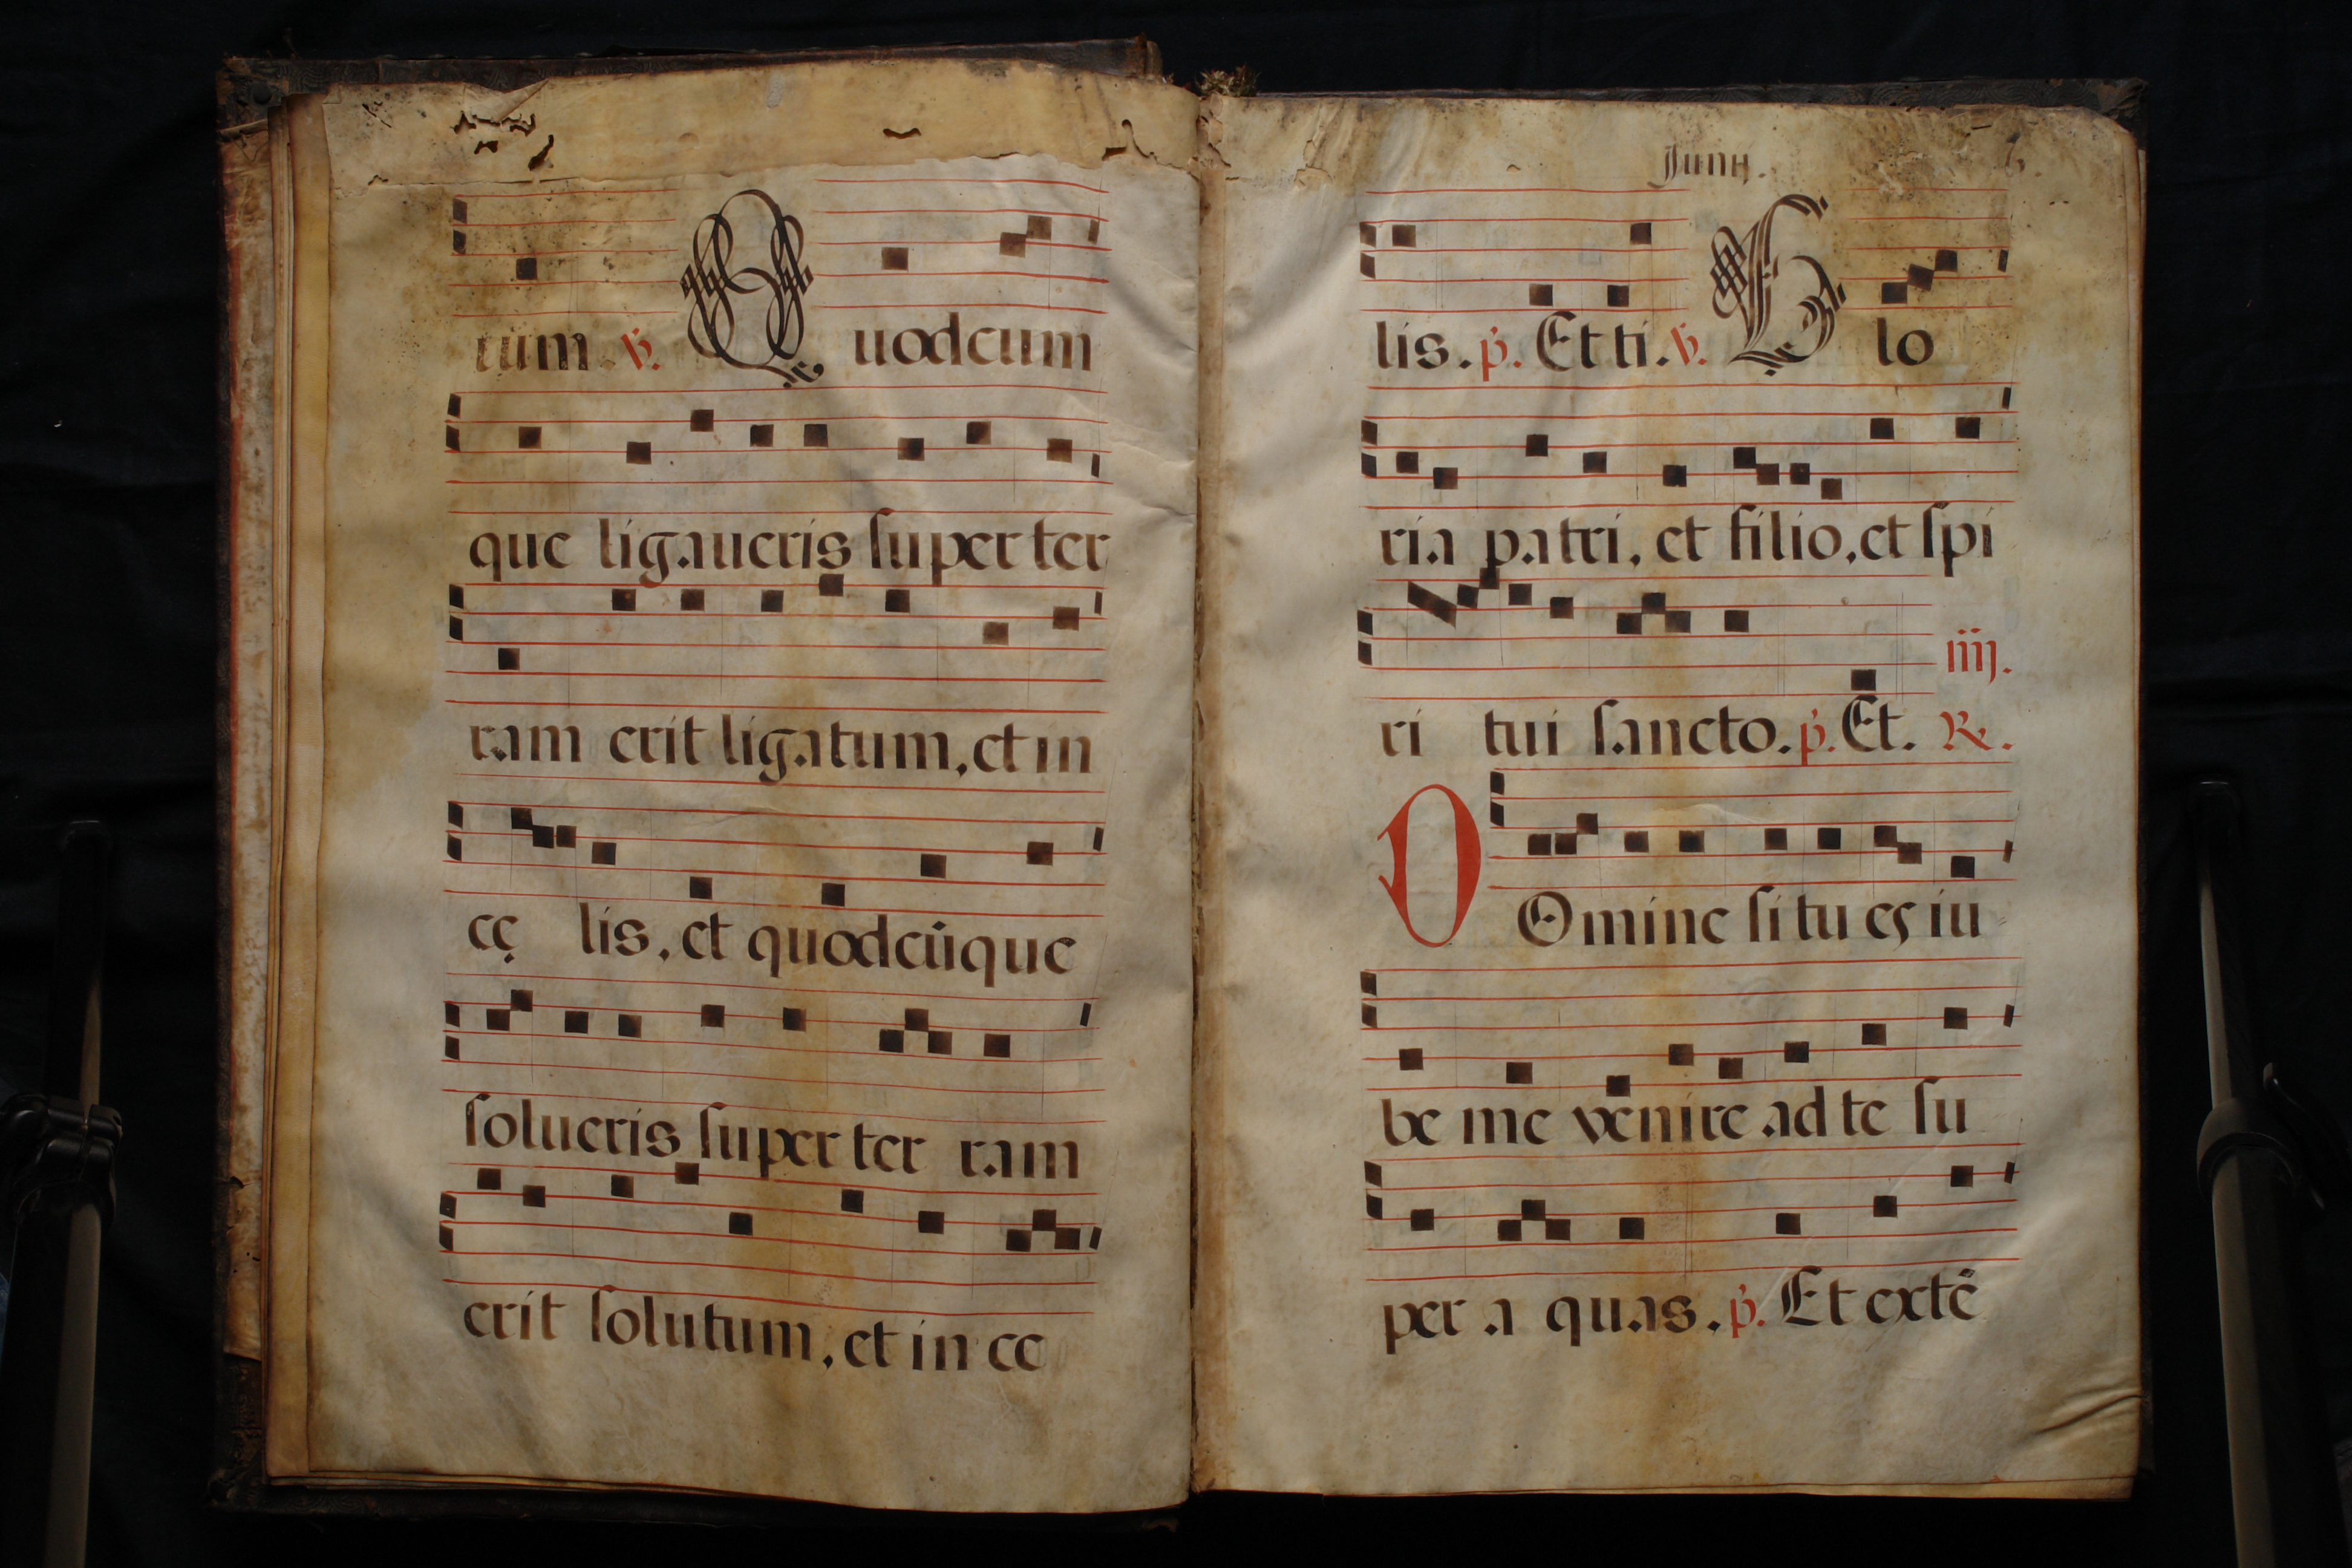 tum. ℣. Quodcum
que ligaueris ſuper ter
ram erit ligatum, et in
cę lis, et quodcūque
ſolueris ſuper ter ram
erit ſolutum, et in ce
Junij.
lis. p̄. Et ti. ℣. Glo
ria patri, et filio, et ſpi
ri tui ſancto. p̄. Et. ℟.
iiij.
DOmine ſi tu es iu
be me venire ad te ſu
per a quas. p̄. Et extē